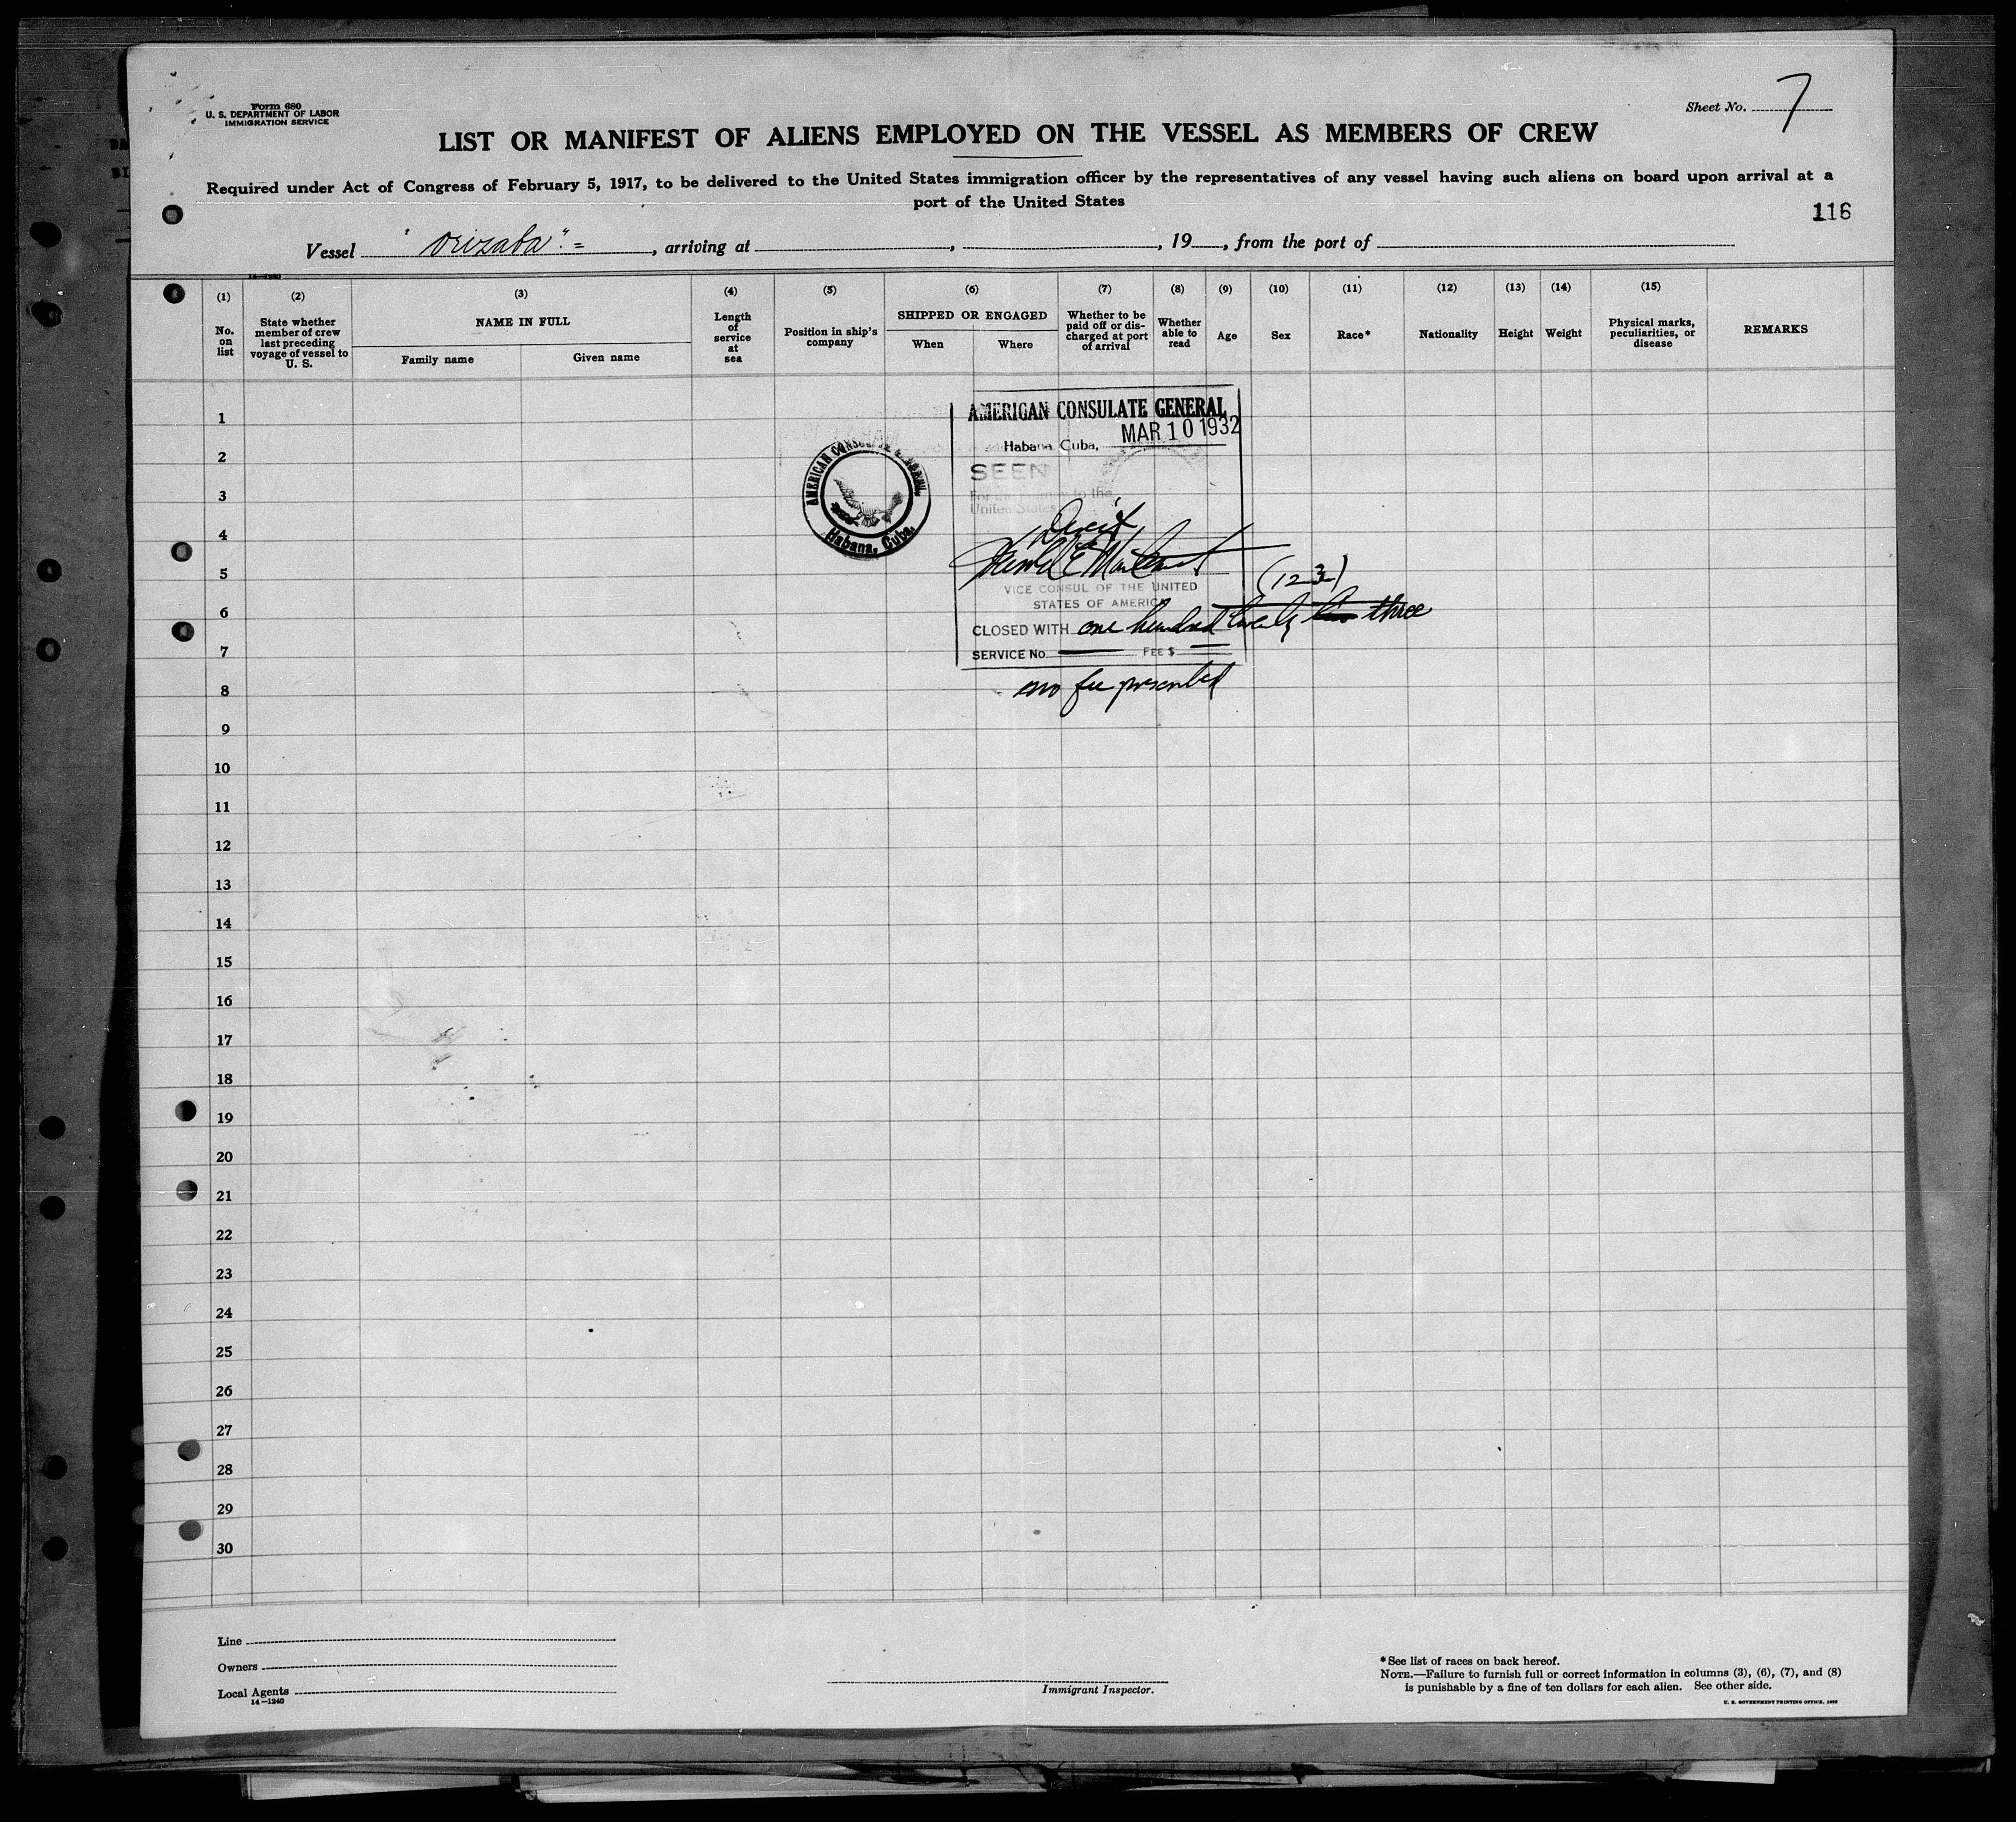 Form 680
U. S. DEPARTMENT OF LABOR
IMMIGRATION SERVICE
Sheet No. 7
LIST OR MANIFEST OF ALIENS EMPLOYED ON THE VESSEL AS MEMBERS OF CREW
Required under Act of Congress of February 5, 1917, to be delivered to the United States immigration officer by the representatives of any vessel having such aliens on board upon arrival at a
port of the United States
116
Vessel "Orizaba".=, arriving at , , 19 , from the port of
14—1240
(1) (2) (3) (4) (5) (6) (7) (8) (9) (10) (11) (12) (13) (14) (15)
No. on list
State whether member of crew last preceding voyage of vessel to U. S.
NAME IN FULL
Family name
Given name
Length of service at sea
Position in ship's company
SHIPPED OR ENGAGED
When
Where
Whether to be paid off or discharged at port of arrival
Whether able to read
Age
Sex
Race*
Nationality
Height
Weight
Physical marks, peculiarities, or disease
REMARKS
1
2
3
4
5
6
7
8
9
10
11
12
13
14
15
16
17
18
19
20
21
22
23
24
25
26
27
28
29
30
AMERICAN CONSULATE GENERAL
Habana, Cuba.
AMERICAN CONSULATE GENERAL
Habana, Cuba, MAR 10 1932
SEEN
For the journey to the
United States
VICE CONSUL OF THE UNITED
STATES OF AMERICA
(123)
CLOSED WITH one hundred twenty three
SERVICE No. FEE $
no fee prescribed
Line
Owners
Local Agents
14—1240
Immigrant Inspector.
*See list of races on back hereof.
NOTE.—Failure to furnish full or correct information in columns (3), (6), (7), and (8)
is punishable by a fine of ten dollars for each alien. See other side.
U. S. GOVERNMENT PRINTING OFFICE